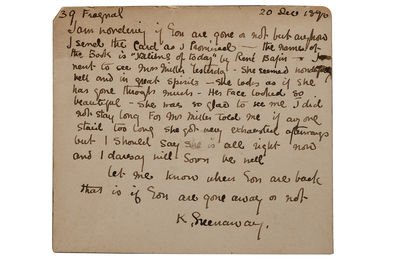 39 Frognal 20 Dec 1896
I am wondering if you are gone or not but anyhow
I send the Card as I Promised — the name of
the Book is "Nation of today" by René Bazin — I
went to see Mrs Miller Yesterday - She seemed wonderfully
well and in great Spirits — She looks as if she
has gone through much - Her Face looked so
beautiful - She was so glad to see me I did
not stay long For Mr Miller Told me if any one
staid too long she got very exhausted afterwards
but I should Say she is all right now
and I daresay will Soon be well
let me know when you are back
that is if you are gone away or not
K. Greenaway.